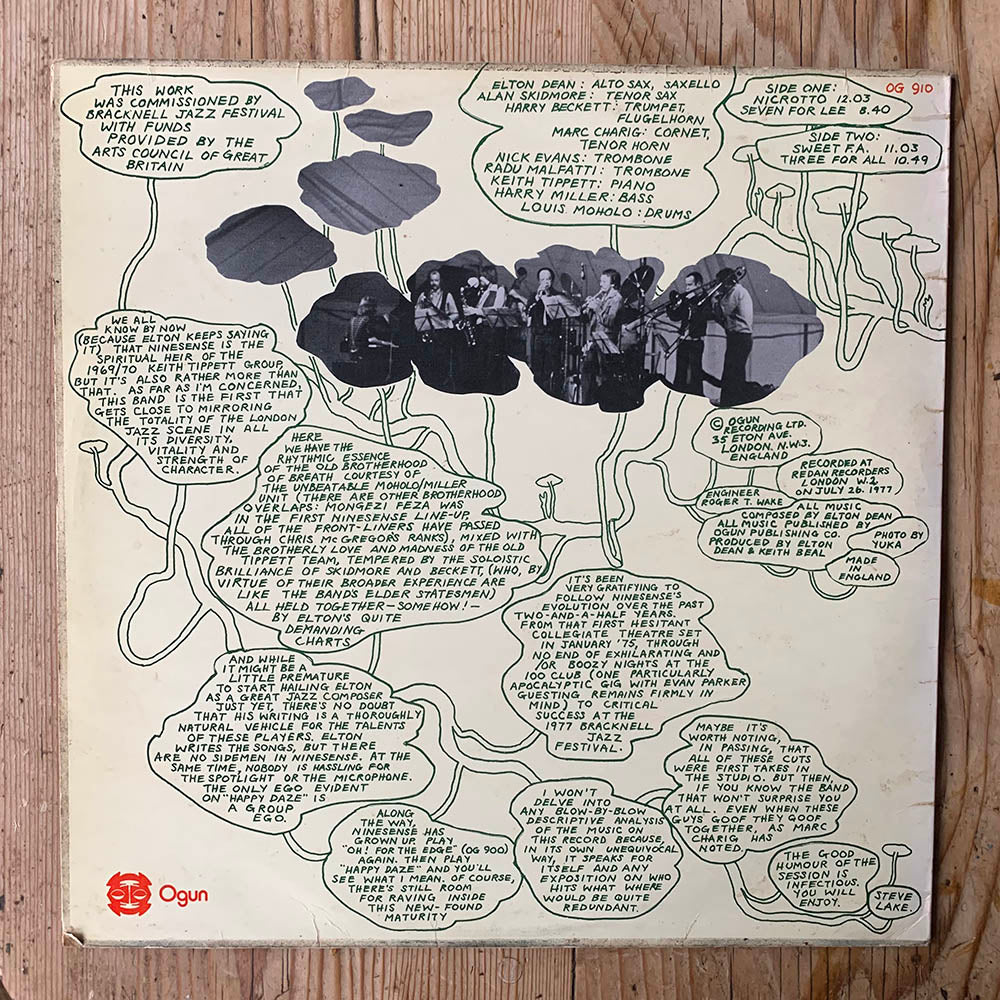 THIS WORK
WAS COMMISSIONED BY
BRACKNELL JAZZ FESTIVAL
WITH FUNDS
PROVIDED BY THE
ARTS COUNCIL OF GREAT
BRITAIN
ELTON DEAN : ALTO SAX, SAXELLO
ALAN SKIDMORE : TENOR SAX
HARRY BECKETT : TRUMPET,
FLUGELHORN
MARC CHARIG : CORNET,
TENOR HORN
NICK EVANS : TROMBONE
RADU MALFATTI : TROMBONE
KEITH TIPPETT : PIANO
HARRY MILLER : BASS
LOUIS MOHOLO : DRUMS
SIDE ONE:
NICROTTO 12.03
SEVEN FOR LEE 8.40
OG 910
SIDE TWO:
SWEET F.A. 11.03
THREE FOR ALL 10.49
WE ALL
KNOW BY NOW
(BECAUSE ELTON KEEPS SAYING
IT) THAT NINESENSE IS THE
SPIRITUAL HEIR OF THE
1969/70 KEITH TIPPETT GROUP,
BUT IT'S ALSO RATHER MORE THAN
THAT. AS FAR AS I'M CONCERNED,
THIS BAND IS THE FIRST THAT
GETS CLOSE TO MIRRORING
THE TOTALITY OF THE LONDON
JAZZ SCENE IN ALL
ITS DIVERSITY,
VITALITY AND
STRENGTH OF
CHARACTER.
HERE
WE HAVE THE
RHYTHMIC ESSENCE
OF THE OLD BROTHERHOOD
OF BREATH COURTESY OF
THE UNBEATABLE MOHOLO/MILLER
UNIT (THERE ARE OTHER BROTHERHOOD
OVERLAPS: MONGEZI FEZA WAS
IN THE FIRST NINESENSE LINE-UP,
ALL OF THE FRONT-LINERS HAVE PASSED
THROUGH CHRIS McGREGOR'S RANKS), MIXED WITH
THE BROTHERLY LOVE AND MADNESS OF THE OLD
TIPPETT TEAM, TEMPERED BY THE SOLOISTIC
BRILLIANCE OF SKIDMORE AND BECKETT, (WHO, BY
VIRTUE OF THEIR BROADER EXPERIENCE ARE
LIKE THE BAND'S ELDER STATESMEN)
ALL HELD TOGETHER - SOMEHOW! -
BY ELTON'S QUITE
DEMANDING
CHARTS
© OGUN
RECORDING LTD.
35 ETON AVE.
LONDON. N.W.3.
ENGLAND
RECORDED AT
REDAN RECORDERS
LONDON W.2
ON JULY 26. 1977
ENGINEER
ROGER T. WAKE
ALL MUSIC
COMPOSED BY ELTON DEAN
ALL MUSIC PUBLISHED BY
OGUN PUBLISHING CO.
PRODUCED BY ELTON
DEAN & KEITH BEAL
PHOTO BY
YUKA
MADE
IN
ENGLAND
IT'S BEEN
VERY GRATIFYING TO
FOLLOW NINESENSE'S
EVOLUTION OVER THE PAST
TWO-AND-A-HALF YEARS.
FROM THAT FIRST HESITANT
COLLEGIATE THEATRE SET
IN JANUARY '75, THROUGH
NO END OF EXHILARATING AND
/OR BOOZY NIGHTS AT THE
100 CLUB (ONE PARTICULARLY
APOCALYPTIC GIG WITH EVAN PARKER
GUESTING REMAINS FIRMLY IN
MIND) TO CRITICAL
SUCCESS AT THE
1977 BRACKNELL
JAZZ
FESTIVAL.
AND WHILE
IT MIGHT BE A
LITTLE PREMATURE
TO START HAILING ELTON
AS A GREAT JAZZ COMPOSER
JUST YET, THERE'S NO DOUBT
THAT HIS WRITING IS A THOROUGHLY
NATURAL VEHICLE FOR THE TALENTS
OF THESE PLAYERS. ELTON
WRITES THE SONGS, BUT THERE
ARE NO SIDEMEN IN NINESENSE. AT THE
SAME TIME, NOBODY IS HASSLING FOR
THE SPOTLIGHT OR THE MICROPHONE.
THE ONLY EGO EVIDENT
ON "HAPPY DAZE" IS
A GROUP
EGO.
ALONG
THE WAY,
NINESENSE HAS
GROWN UP. PLAY
"OH! FOR THE EDGE" (OG 900)
AGAIN. THEN PLAY
"HAPPY DAZE" AND YOU'LL
SEE WHAT I MEAN. OF COURSE,
THERE'S STILL ROOM
FOR RAVING INSIDE
THIS NEW-FOUND
MATURITY
I WON'T
DELVE INTO
ANY BLOW-BY-BLOW
DESCRIPTIVE ANALYSIS
OF THE MUSIC ON
THIS RECORD BECAUSE,
IN ITS OWN UNEQUIVOCAL
WAY, IT SPEAKS FOR
ITSELF AND ANY
EXPOSITION ON WHO
HITS WHAT WHERE
WOULD BE QUITE
REDUNDANT.
MAYBE IT'S
WORTH NOTING,
IN PASSING, THAT
ALL OF THESE CUTS
WERE FIRST TAKES IN
THE STUDIO. BUT THEN,
IF YOU KNOW THE BAND
THAT WON'T SURPRISE YOU
AT ALL. EVEN WHEN THESE
GUYS GOOF THEY GOOF
TOGETHER, AS MARC
CHARIG HAS
NOTED.
THE GOOD
HUMOUR OF THE
SESSION IS
INFECTIOUS.
YOU WILL
ENJOY.
STEVE
LAKE.
Ogun